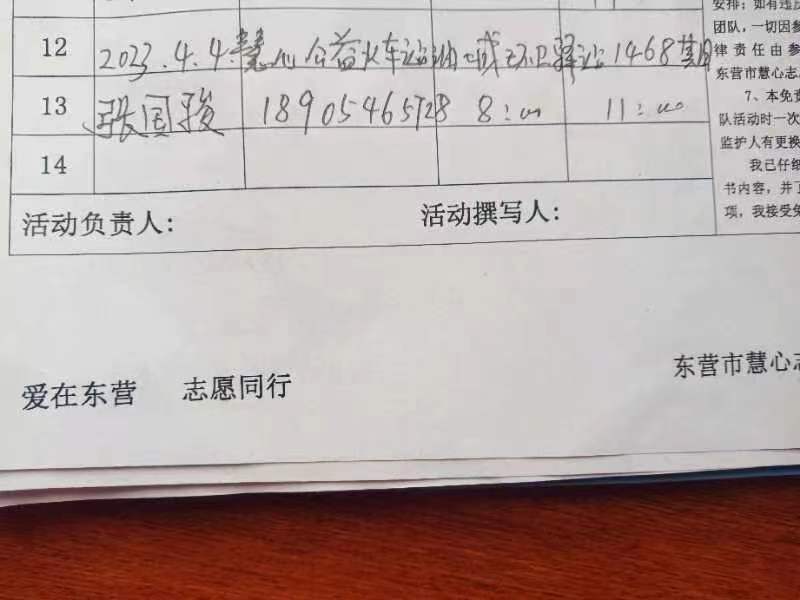 安排；如有违反
团队，一切因参
律责任由参
东营市慧心志
7、本免责
队活动时一次
监护人有更换
我已仔细
书内容，并了
项，我接受免
12 2023.4.4.慧心公益火车站油城环卫驿站1468期
13 张国骏 18905465728 8:00 11:00
14
活动负责人： 活动撰写人：
爱在东营 志愿同行
东营市慧心志